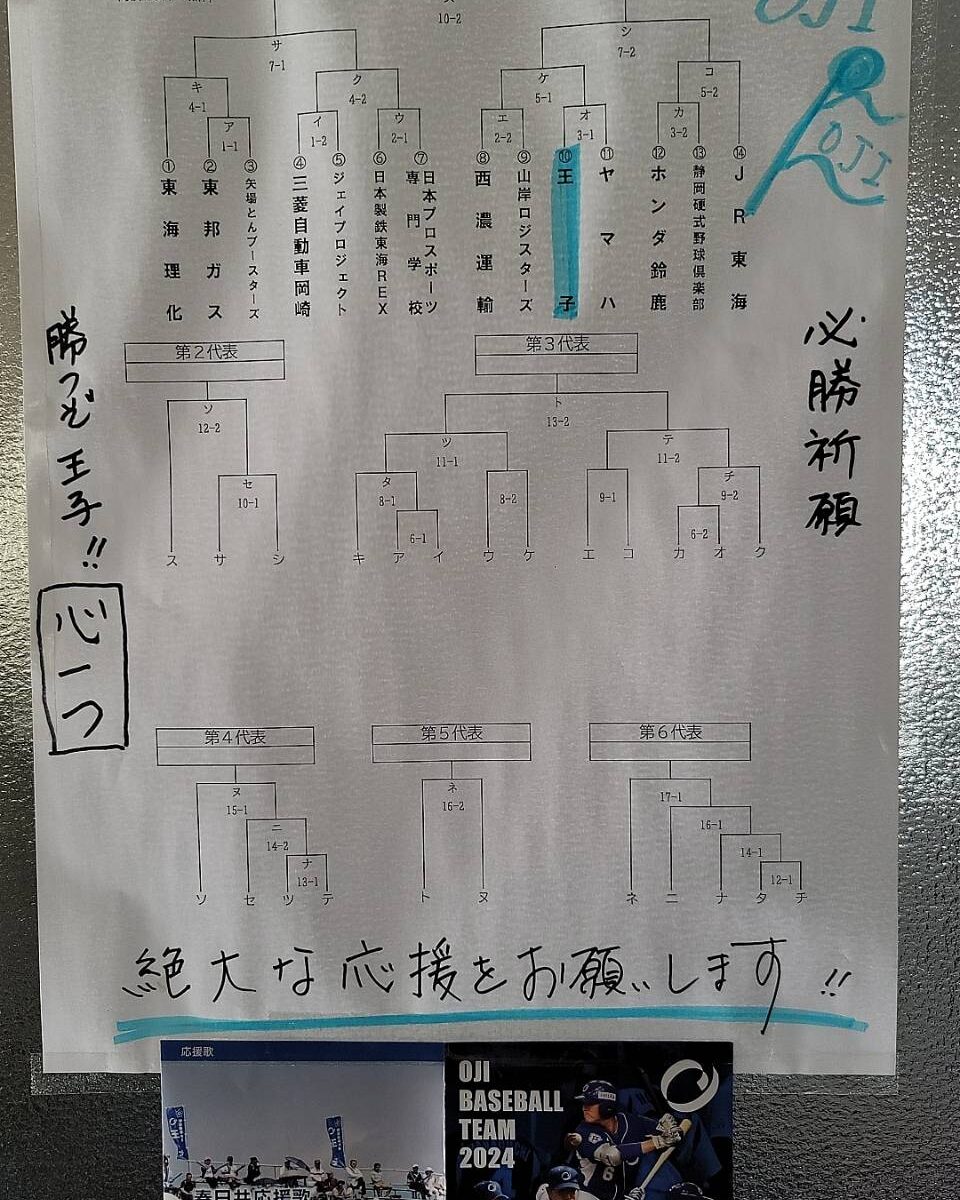 10-2
OJI
サ
7-1
シ
7-2
キ
4-1
ク
4-2
ケ
5-1
コ
5-2
ア
1-1
イ
1-2
ウ
2-1
エ
2-2
オ
3-1
カ
3-2
OJI
①東海理化
②東邦ガス
③矢場とんブースターズ
④三菱自動車岡崎
⑤ジェイプロジェクト
⑥日本製鉄東海REX
⑦日本プロスポーツ
専門学校
⑧西濃運輸
⑨山岸ロジスターズ
⑩王子
⑪ヤマハ
⑫ホンダ鈴鹿
⑬静岡硬式野球倶楽部
⑭JR東海
必勝祈願
勝つぞ王子!!
心一つ
第2代表
ソ
12-2
セ
10-1
ス サ シ
第3代表
ト
13-2
ツ
11-1
テ
11-2
タ
8-1
8-2
9-1
チ
9-2
6-1
6-2
キ ア イ ウ ケ エ コ カ オ ク
第4代表
ヌ
15-1
ニ
14-2
ナ
13-1
ソ セ ツ テ
第5代表
ネ
16-2
ト ヌ
第6代表
17-1
16-1
14-1
12-1
ネ ニ ナ タ チ
絶大な応援をお願いします!!
応援歌
春日井応援歌
OJI
BASEBALL
TEAM
2024
6